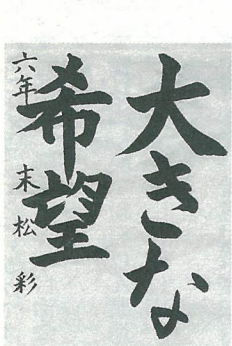 大きな
希望
六年 末松 彩